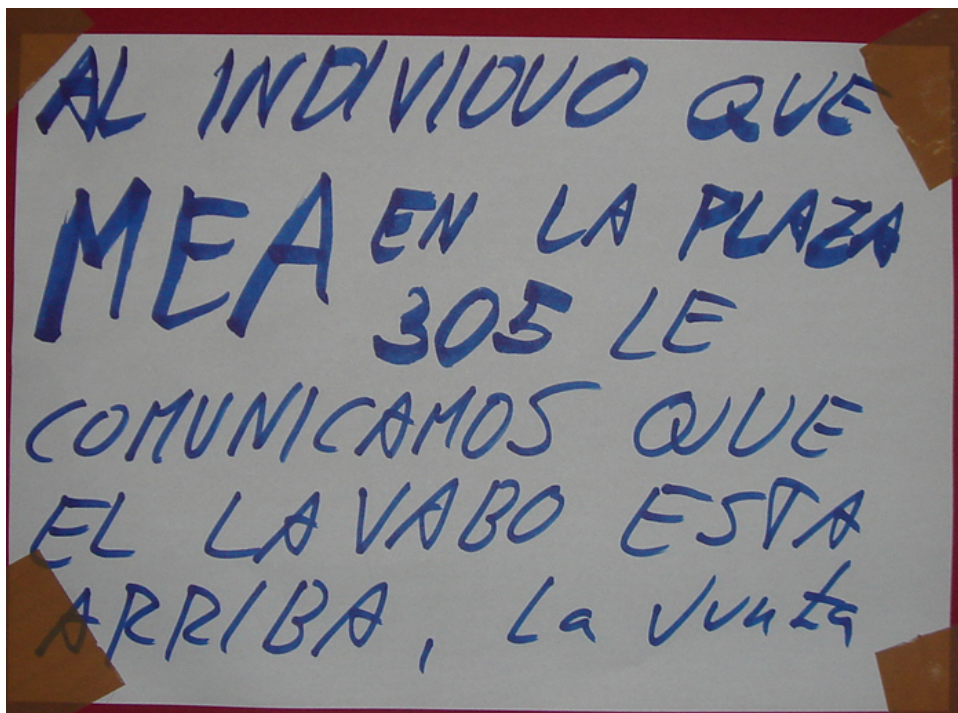 AL INDIVIDUO QUE
MEA EN LA PLAZA
305 LE
COMUNICAMOS QUE
EL LAVABO ESTA
ARRIBA, La Junta